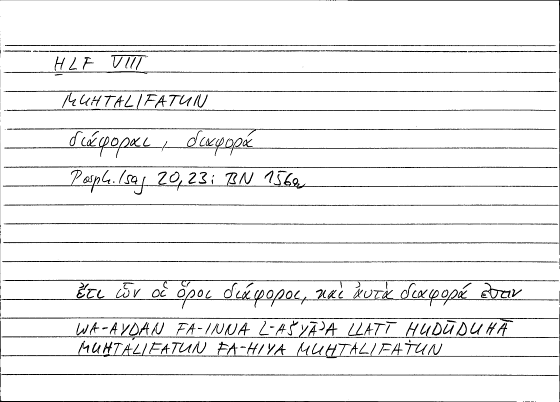 ḪLF VIII
MUḪTALIFATUN
διάφοραι, διαφορά
Porph. Isag 20,23; BN 156a
ἔτι ὧν οἱ ὅροι διάφοροι, καὶ αὐτὰ διαφορά ἐστιν
WA-AYḌAN FA-INNA L-AŠYĀʾA LLATĪ ḤUDŪDUHĀ
MUḪTALIFATUN FA-HIYA MUḪTALIFATUN